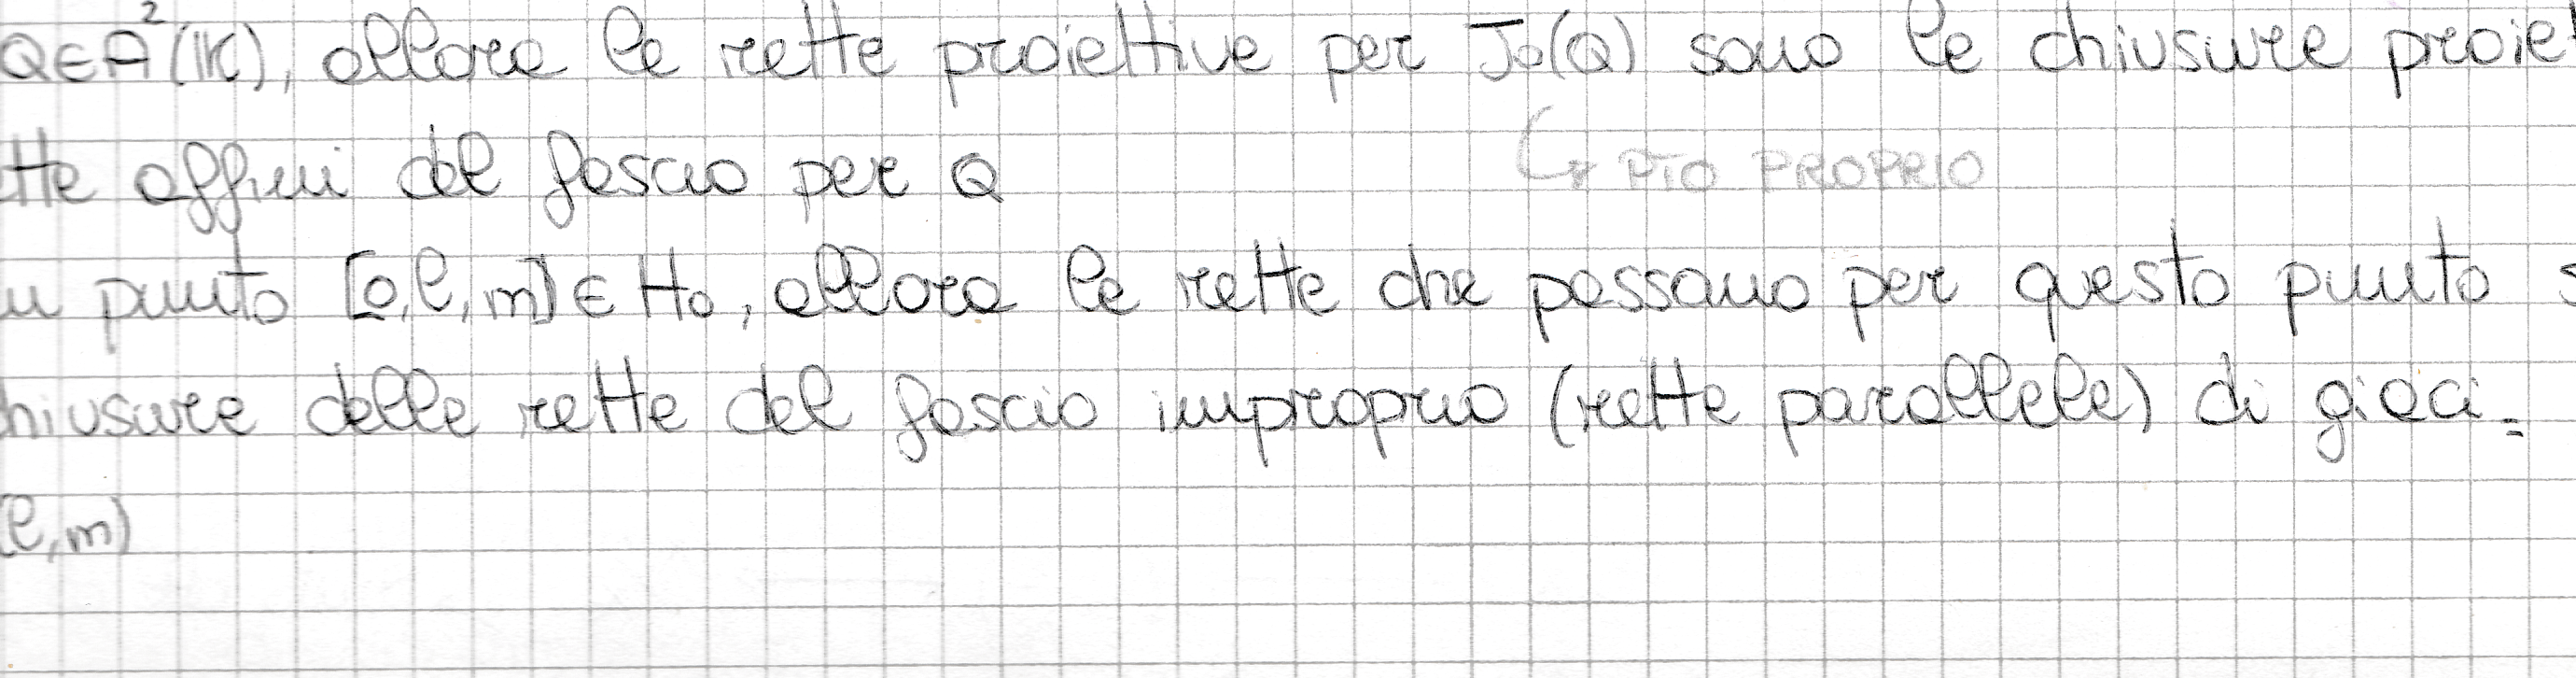 Q∈A²(K), allora le rette proiettive per J₀(Q) sono le chiusure proiet
tte affini del fascio per Q
↳ PTO PROPRIO
u punto [0,l,m]∈H₀, allora le rette che passano per questo punto s
hiusure delle rette del fascio improprio (rette parallele) di giaci=
(l,m)